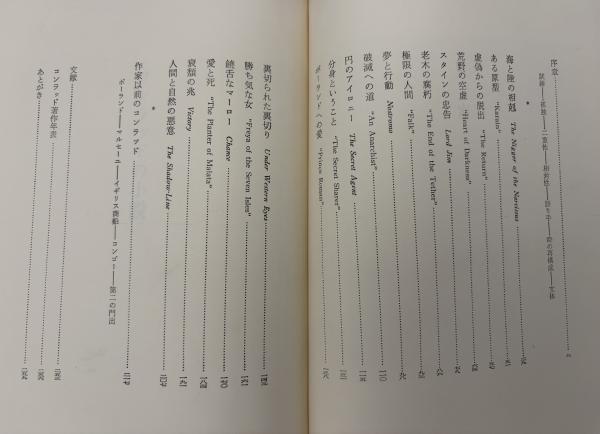 序章
誤解――孤独――二重性――相対性――語り手――時の再構成――文体
*
海と陸の相剋 The Nigger of the Narcissus
ある原型 "Karain"
虚偽からの脱出 "The Return"
荒野の空虚 "Heart of Darkness"
スタインの忠告 Lord Jim
老木の腐朽 "The End of the Tether"
極限の人間 "Falk"
夢と行動 Nostromo 110
破滅への道 "An Anarchist"
円のアイロニー The Secret Agent
分身ということ "The Secret Sharer"
ポーランドへの愛 "Prince Roman"
裏切られた裏切り Under Western Eyes
勝ち気な女 "Freya of the Seven Isles"
饒舌なマーロー Chance
愛と死 "The Planter of Malata"
衰頽の兆 Victory
人間と自然の悪意 The Shadow-Line
*
作家以前のコンラッド
ポーランド――マルセーユ――イギリス商船――コンゴー――第二の門出
文献
コンラッド著作年表
あとがき